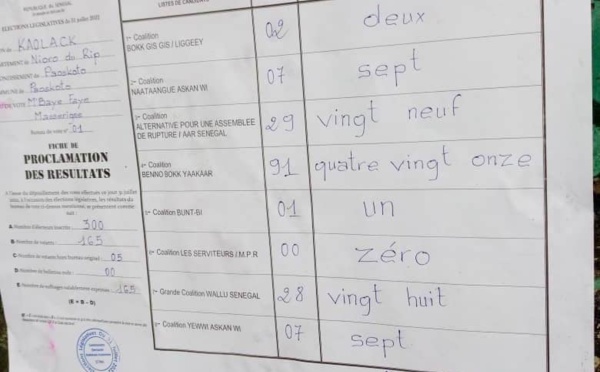 REPUBLIQUE DU SENEGAL
ELECTIONS LEGISLATIVES du 31 juillet 2022
KAOLACK
Nioro du Rip
Paoskoto
Paoskoto
M'Baye Faye
Bureau de vote n° 01
FICHE DE
PROCLAMATION
DES RESULTATS
A- Nombre d'électeurs inscrits : 300
B- Nombre de votants : 165
05
D- Nombre de bulletins nuls : 00
E- Nombre de suffrages valablement exprimés : 165
(E = B - D)
LISTES DE CANDIDATS
Coalition
BOKK GIS GIS / LIGGEEY
02
deux
Coalition
NAATAANGUE ASKAN WI
07
sept
Coalition
ALTERNATIVE POUR UNE ASSEMBLEE
DE RUPTURE / AAR SENEGAL
29
vingt neuf
Coalition
BENNO BOKK YAAKAAR
91
quatre vingt onze
Coalition BUNT-BI
01
un
Coalition LES SERVITEURS / M.P.R
00
zéro
Grande Coalition WALLU SENEGAL
28
vingt huit
Coalition YEWWI ASKAN WI
07
sept